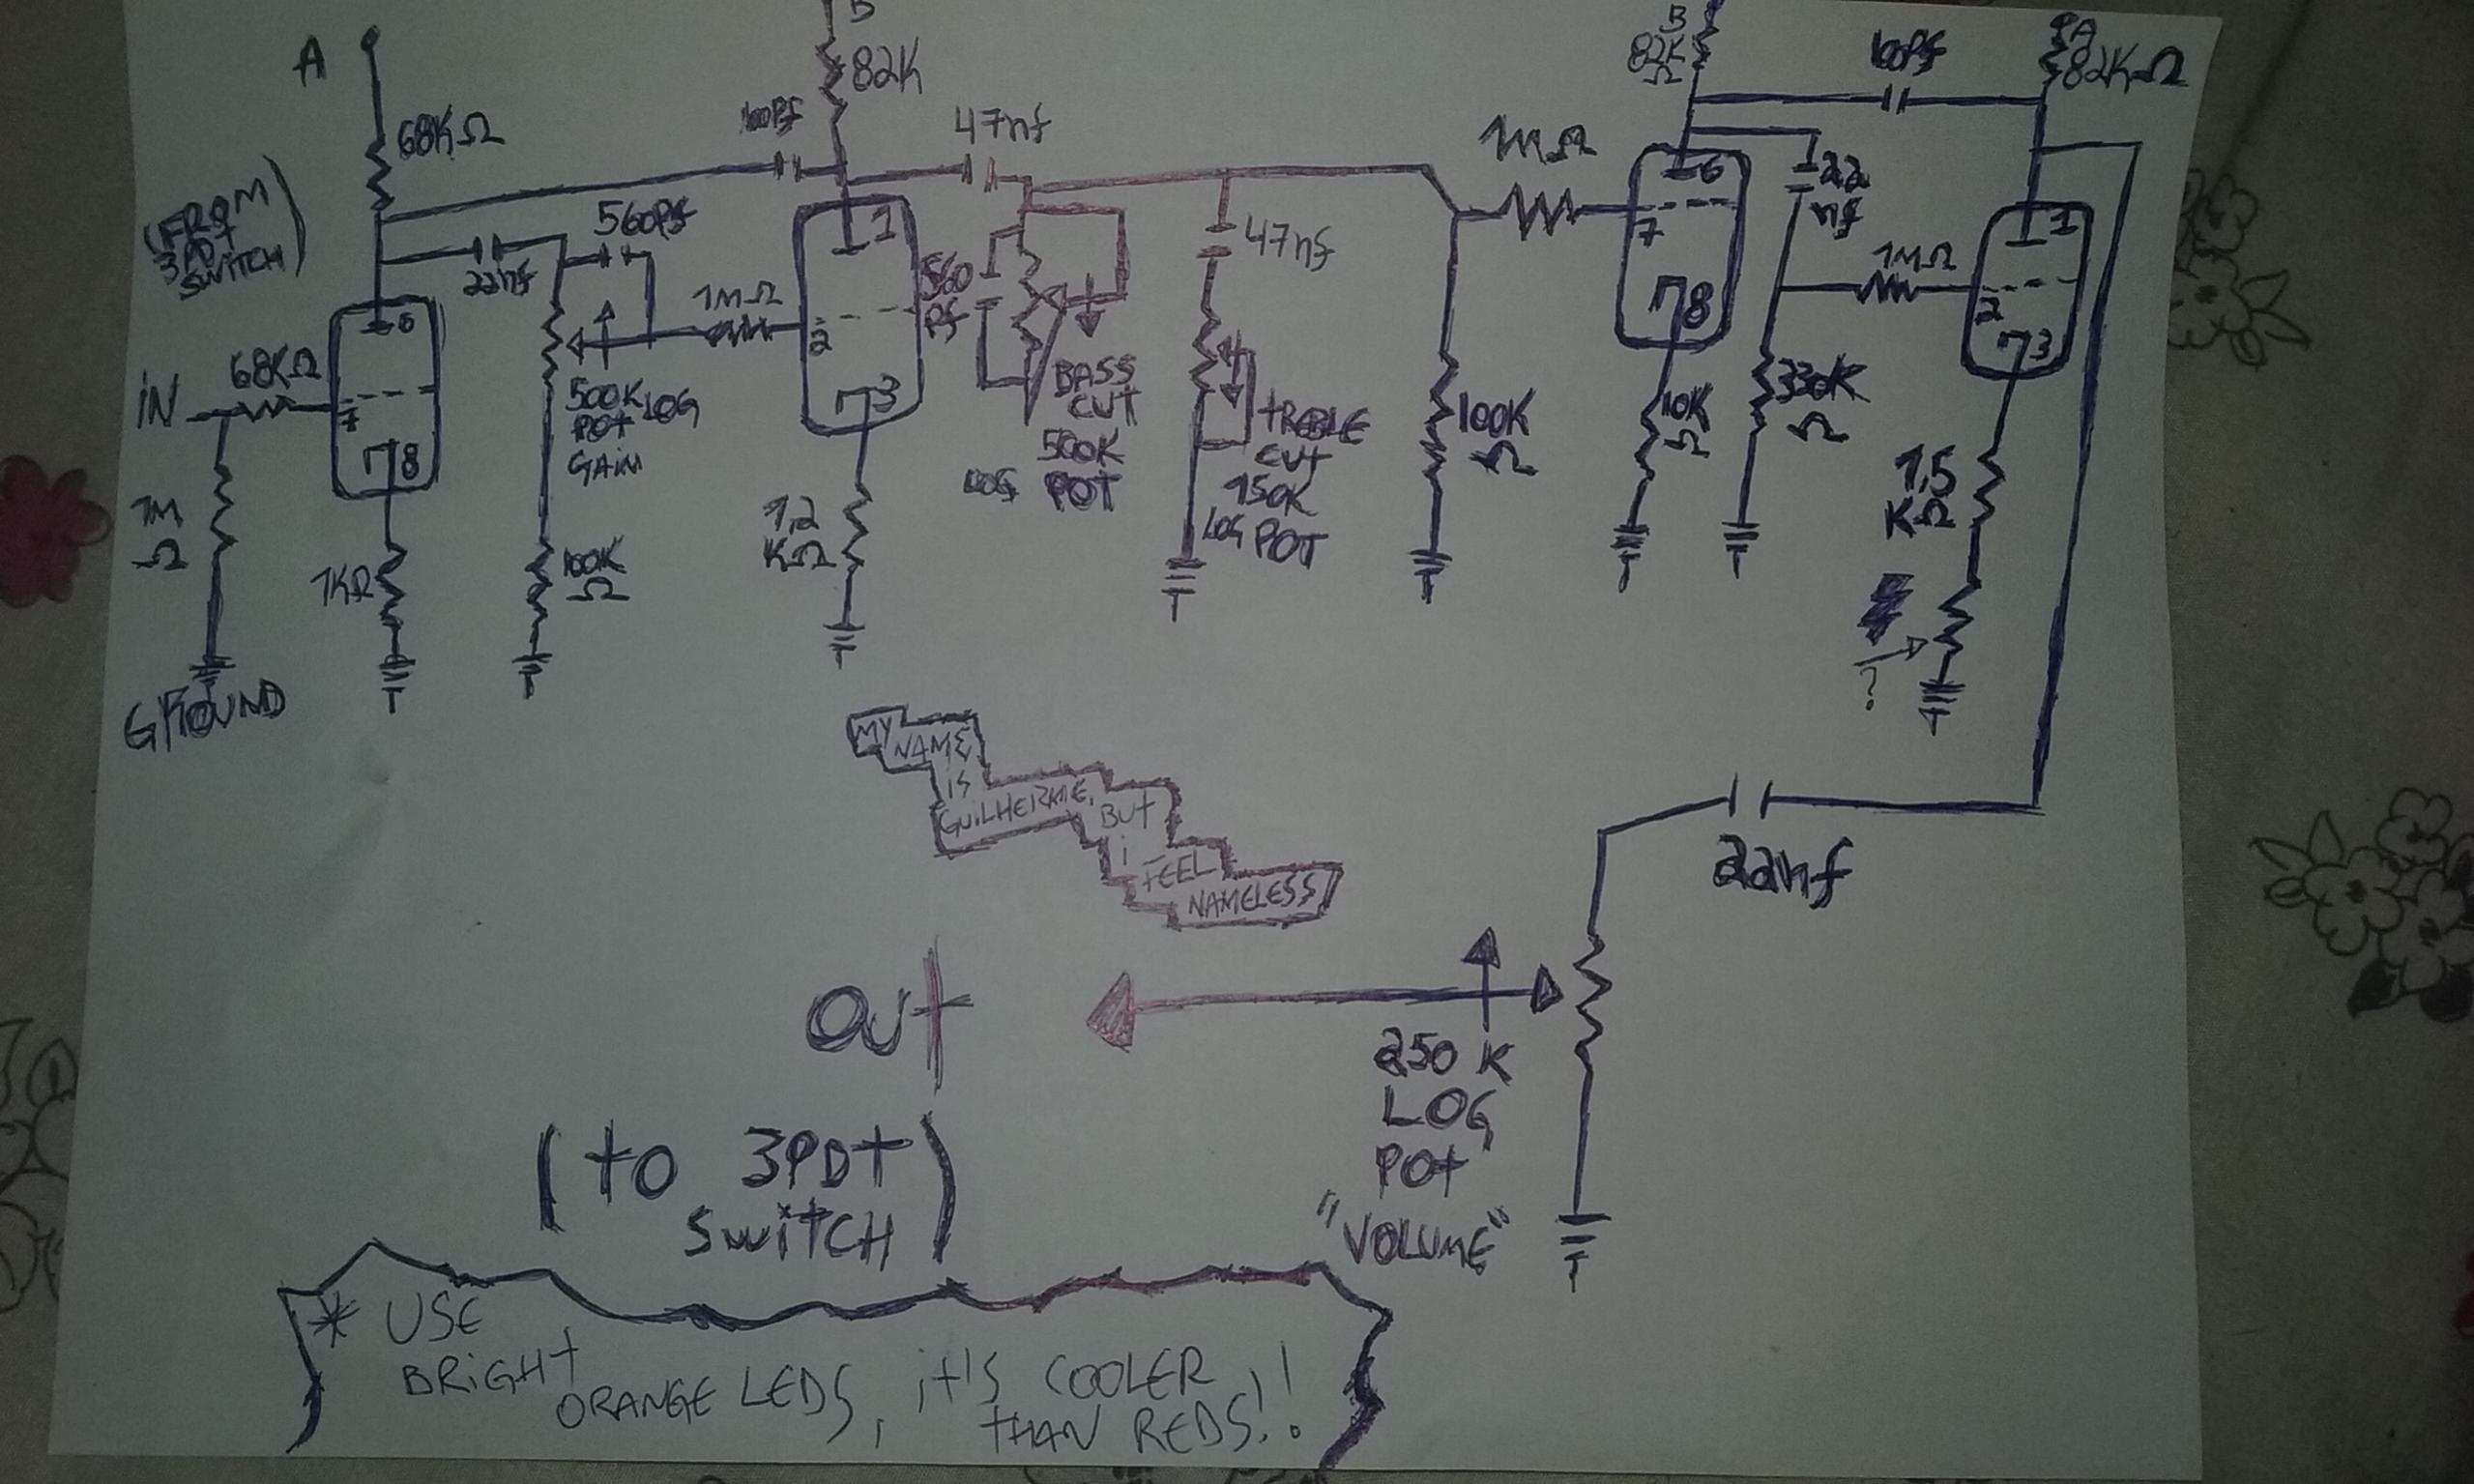 A
68KΩ
(FROM
3PDT
SWITCH)
IN
68KΩ
6
7
8
1M
Ω
GROUND
1KΩ
22nf
560Pf
500K
POT LOG
GAIN
100K
Ω
1MΩ
100Pf
B
82K
1
2
3
1,2
KΩ
47nf
560
Pf
BASS
CUT
500K
LOG POT
47nf
tREBLE
CUT
150K
LOG POT
1MΩ
100K
Ω
B
82K
Ω
6
7
8
10K
Ω
100Pf
2,2
nf
1MΩ
330K
Ω
A
82KΩ
1
2
3
1,5
KΩ
?
22nf
MY
NAME
IS
GUILHERME,
BUT
i
FEEL
NAMELESS
OUt
250 K
LOG
POt
"VOLUME"
(to 3PDt
SWitCH)
* USE
BRiGHt
ORANGE LEDS, it'S COOLER
tHAN REDS!!